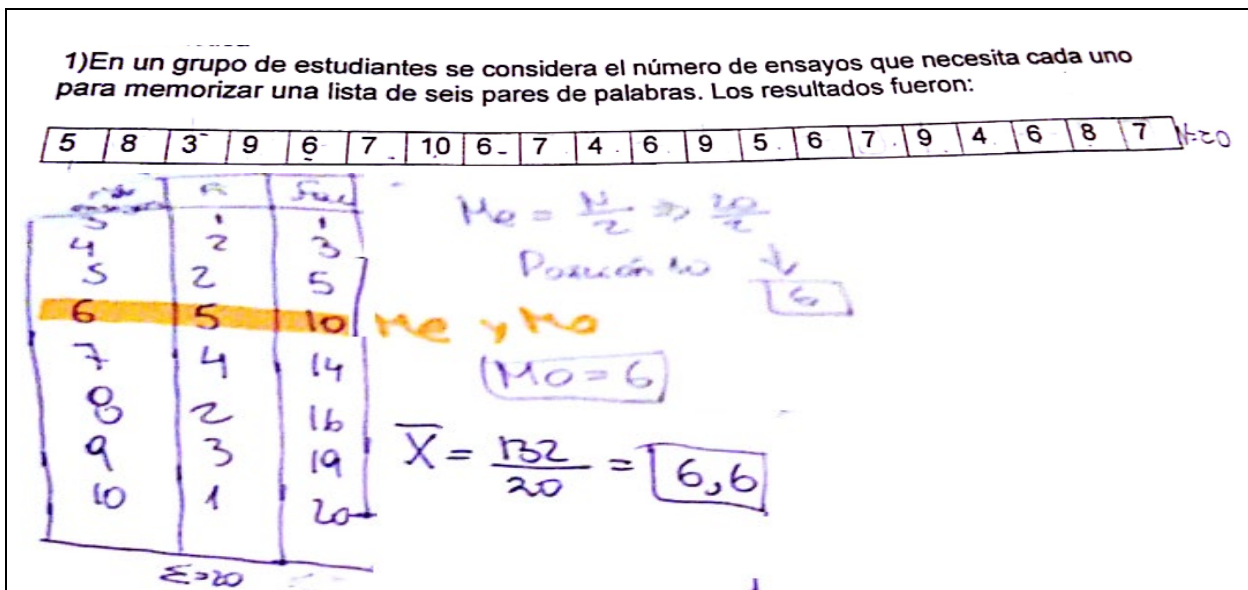 1)En un grupo de estudiantes se considera el número de ensayos que necesita cada uno
para memorizar una lista de seis pares de palabras. Los resultados fueron:
5 8 3 9 6 7 10 6 7 4 6 9 5 6 7 9 4 6 8 7 N=20
3 1 1
4 2 3
5 2 5
6 5 10 Me y Mo
7 4 14
8 2 16
9 3 19
10 1 20
Σ=20
Me = N/2 => 20/2
Posición 10
6
Mo = 6
X̅ = 132/20 = 6,6